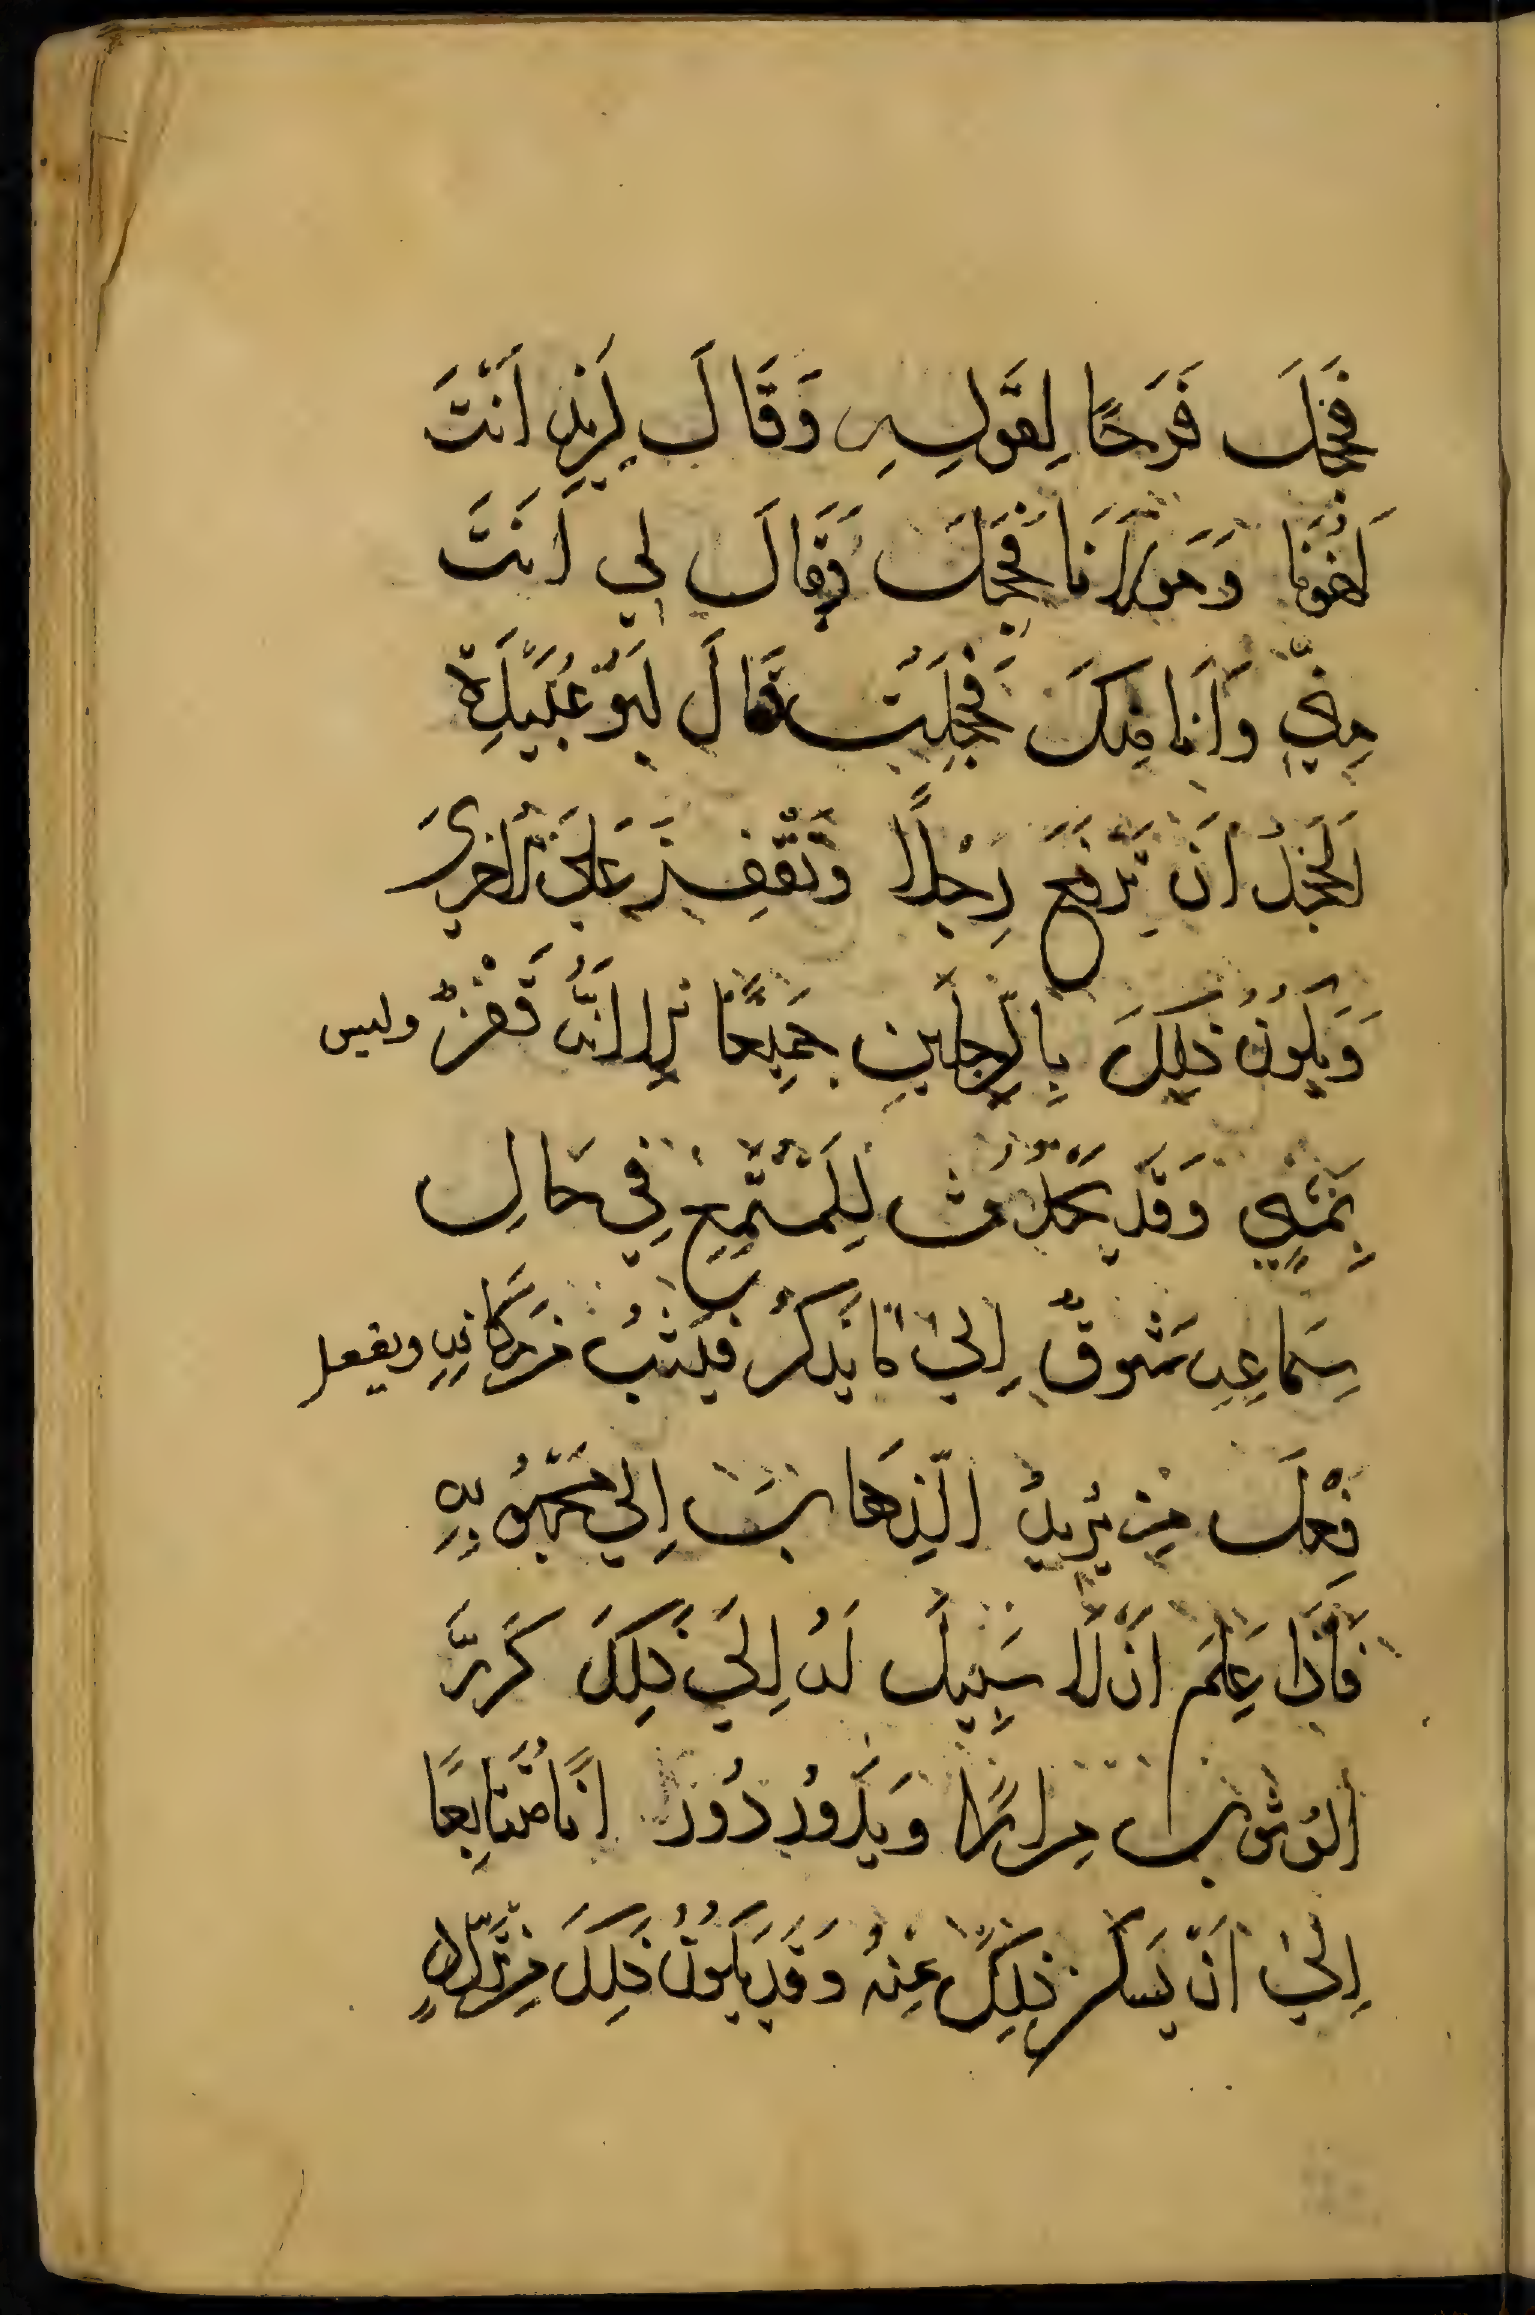 فَحَجَلَ فَرَحًا لِقَولِهِ وَقَالَ لِزَيدٍ أَنْتَ
أَخُونَا وَمَولَانَا فَحَجَلَ وَقَالَ لِي أَنْتَ
مِنِّي وَأَنَا مِنكَ فَحَجَلْتُ قَالَ أَبُو عُبَيْدَةَ
اَلْحَجَلُ أَن يَرْفَعَ رِجْلًا وَيَقْفِزَ عَلَى الأُخرَى
وَيَكُونُ ذَلِكَ بِالرِّجلَينِ جَمِيعًا إِلا أَنَّهُ قَفْزٌ وليس
بِمَشْيٍ وَقَد يَحْدُثُ لِلْمُسْتَمِعِ فِي حَالِ
سَمَاعِهِ شَوقٌ إِلَى مَا يَذكُرُ فَيَثِبُ مِن مَكَانِهِ ويفعل
فِعْلَ مَن يُرِيدُ الذِّهَابَ إِلَى مَحْبُوبِهِ
فَإِذَا عَلِمَ أَن لَا سَبِيلَ لَهُ إِلَى ذَلِكَ كَرَّرَ
الوُثُوبَ مِرَارًا وَيَدُورُ دَوَرَانًا مُتَتَابِعًا
إِلَى أَن يَسكُنَ ذَلِكَ عَنْهُ وَقَد يَكُونُ ذَلِكَ مِن